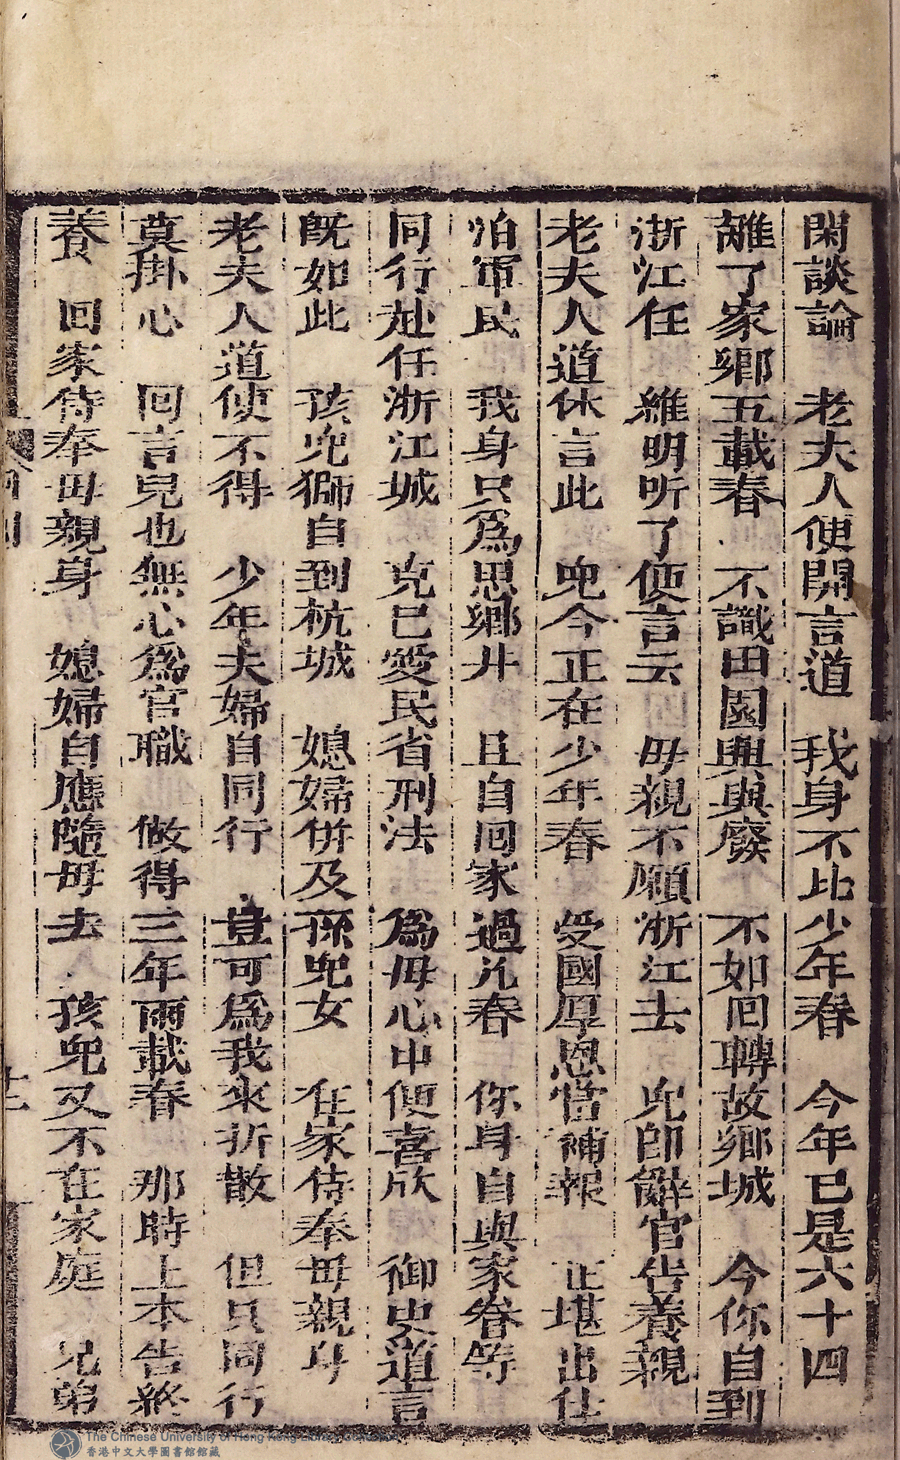 閑談論　老夫人便開言道　我身不比少年春　今年已是六十四
離了家鄉五載春　不識田園興與廢　不如回轉故鄉城　今你自到
浙江任　維明听了便言云　母親不願浙江去　児卽辭官告養親
老夫人道休言此　児今正在少年春　受國厚恩當補報　正堪出仕
治軍民　我身只爲思鄉井　且自回家過几春　你身自與家眷等
同行赴任浙江城　克已愛民省刑法　爲母心中便喜欣　御史道言
旣如此　孩児獅自到杭城　媳婦併及孫児女　在家侍奉母親身
老夫人道使不得　少年夫婦自同行　豈可爲我來折散　但只同行
莫掛心　回言兒也無心爲官職　做得三年兩載春　那時上本告終
養　回家侍奉母親身　媳婦自應隨母去　孩児又不在家庭　兄弟
The Chinese University of Hong Kong
香港中文大學圖書館館藏